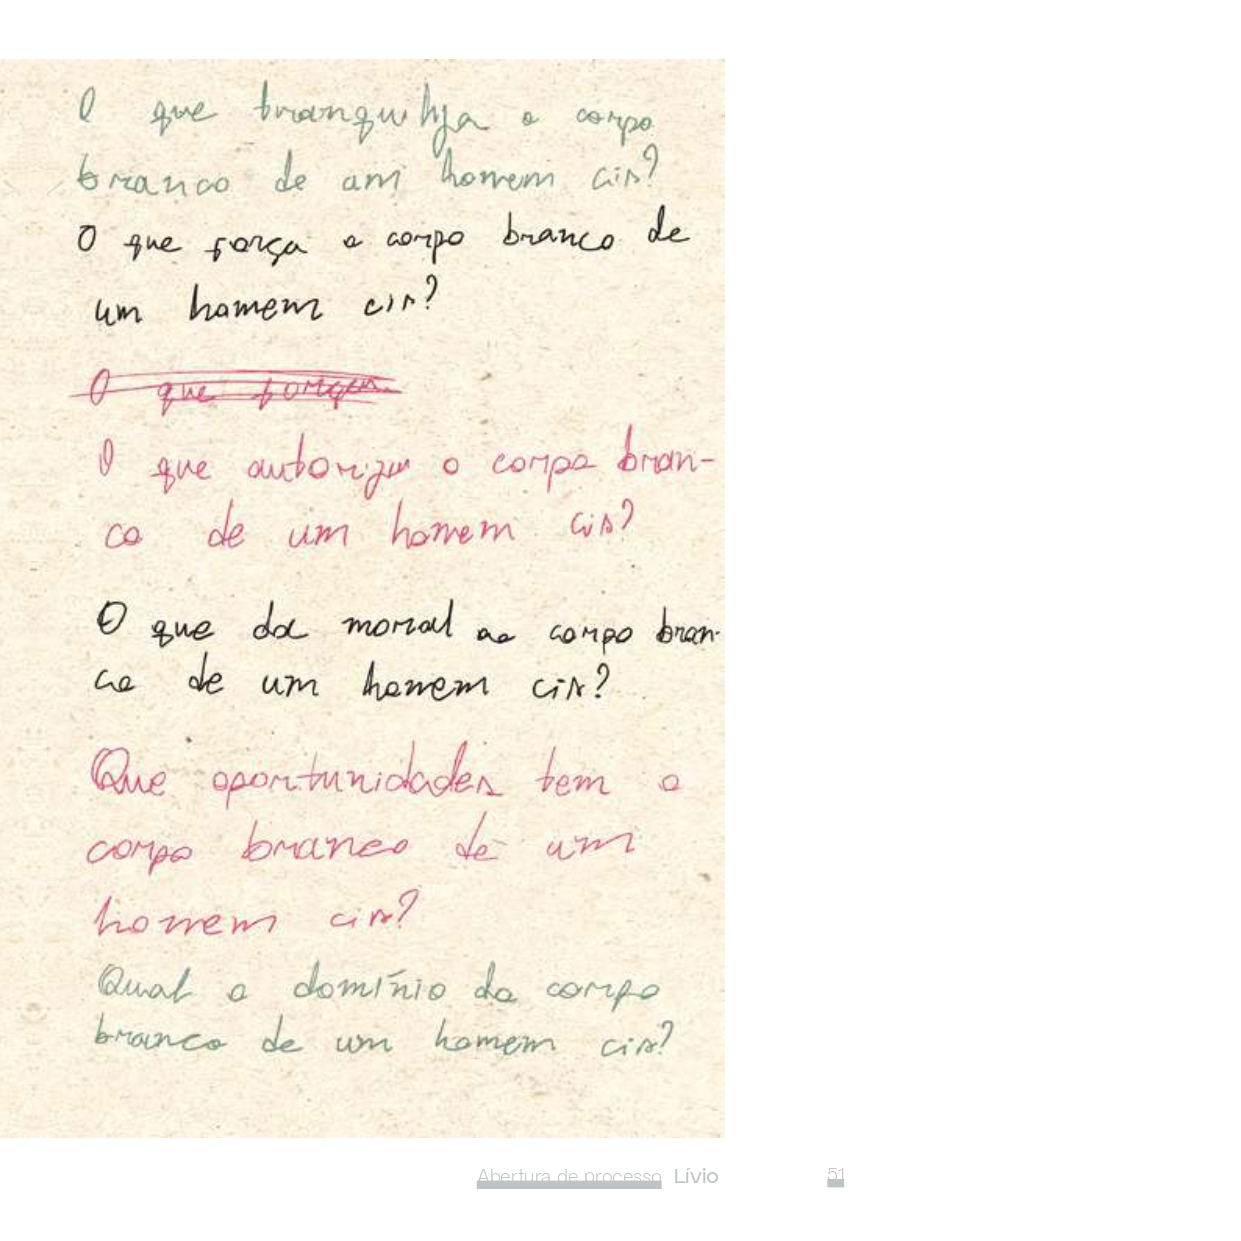 O que tranquiliza o corpo
branco de um homem cis?
O que força o corpo branco de
um homem cis?
O que forçar
O que autoriza o corpo bran-
co de um homem cis?
O que da moral ao corpo bran-
co de um homem cis?
Que oportunidades tem o
corpo branco de um
homem cis?
Qual o domínio do corpo
branco de um homem cis?
Abertura de processo Lívio 51